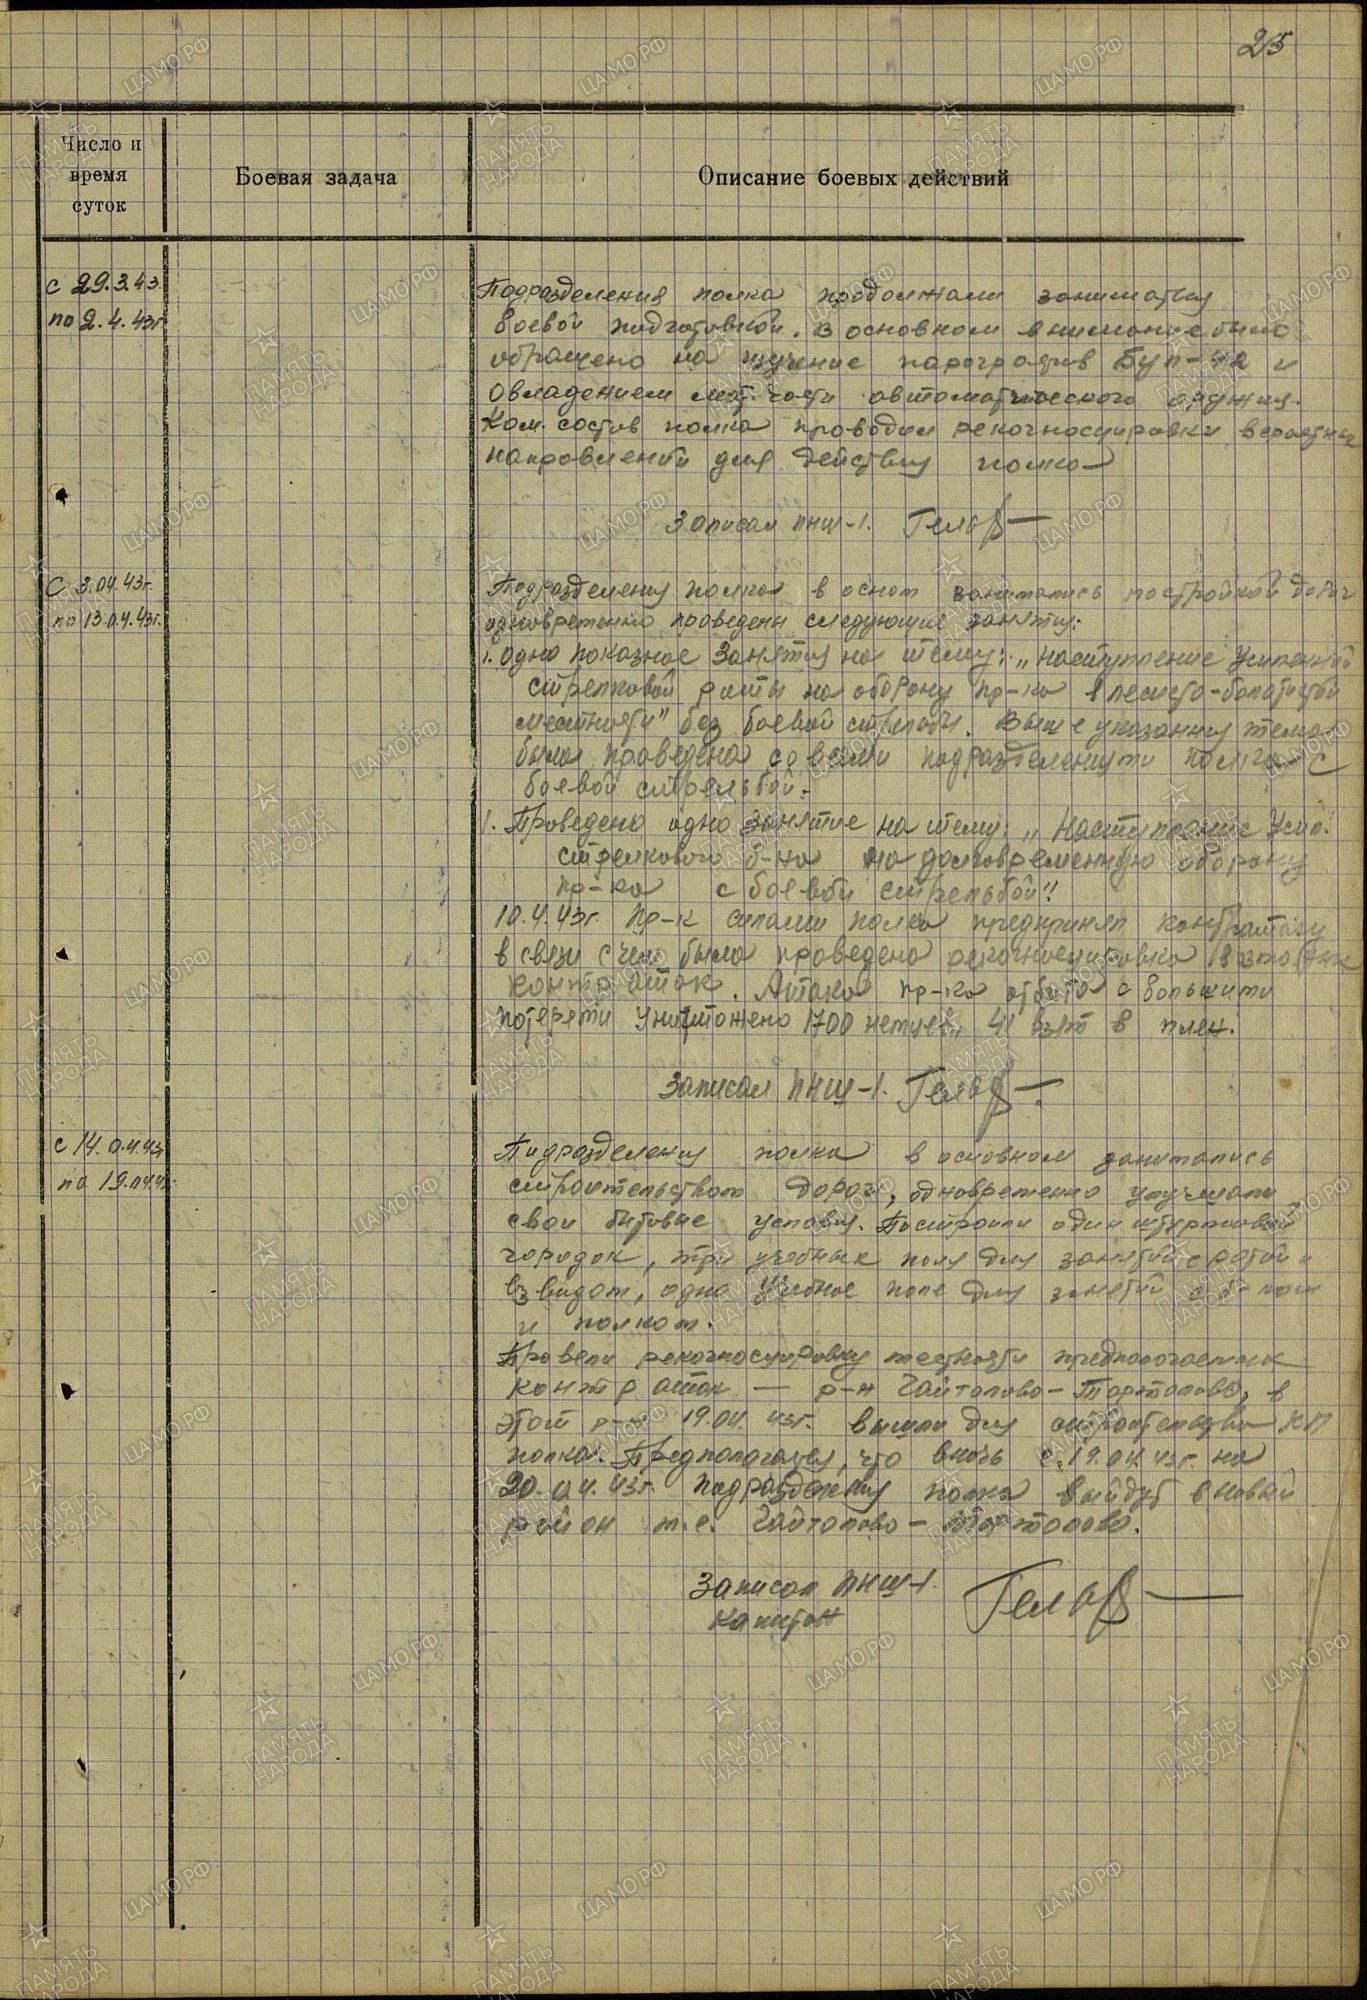 25
Число и
время
суток
Боевая задача
Описание боевых действий
с 29.3.43
по 2.4.43г
Подразделения полка продолжали заниматься
боевой подготовкой. В основном внимание было
обращено на изучение параграфов БУП-42 и
овладением мат.части автоматического оружия.
Ком. состав полка проводил рекогносцировки вероятных
направлений для действия полка
Записал ПНШ-1. Гельф
С 3.04.43г.
по 13.04.43г.
Подразделения полка в основ занимались постройкой дорог
одновременно проведены следующие занятия:
1. Одно показное занятия на тему: „Наступление усиленной
стрелковой роты на оборону пр-ка в лесисто-болотистой
местности" без боевой стрельбы. Выше указанная тема
была проведена со всеми подразделениями полка с
боевой стрельбой.
1. Проведено одно занятие на тему: „Наступление Усил.
стрелкового б-на на долговременную оборону
пр-ка с боевой стрельбой"
10.4.43г. пр-к силами полка предпринял контратаку
в связи с чем была проведена рекогносцировка
контр атак. Атака пр-ка отбита с большими
потерями уничтожено 1700 немцев, 41 взят в плен.
Записал ПНШ-1. Гельф
с 14.04.43г
по 19.04.43г
Подразделения полка в основном занимались
строительством дорог, одновременно улучшали
свои бытовые условия. Построили один штурмовой
городок, три учебных поля для занятий с ротой и
взводом, одно учебное поле для занятий с б-ном
и полком.
Провели рекогносцировку местности предполагаемых
контр атак — р-н Гайтолово-Тортолово, в
этот р-н 19.04.43г. вышли для строительства КП
полка. Предполагается, что в ночь с 19.04.43г. на
20.04.43г. подразделения полка выйдут в новый
район т.е. Гайтолово-Тортолово.
Записал ПНШ-1.
капитан Гельф